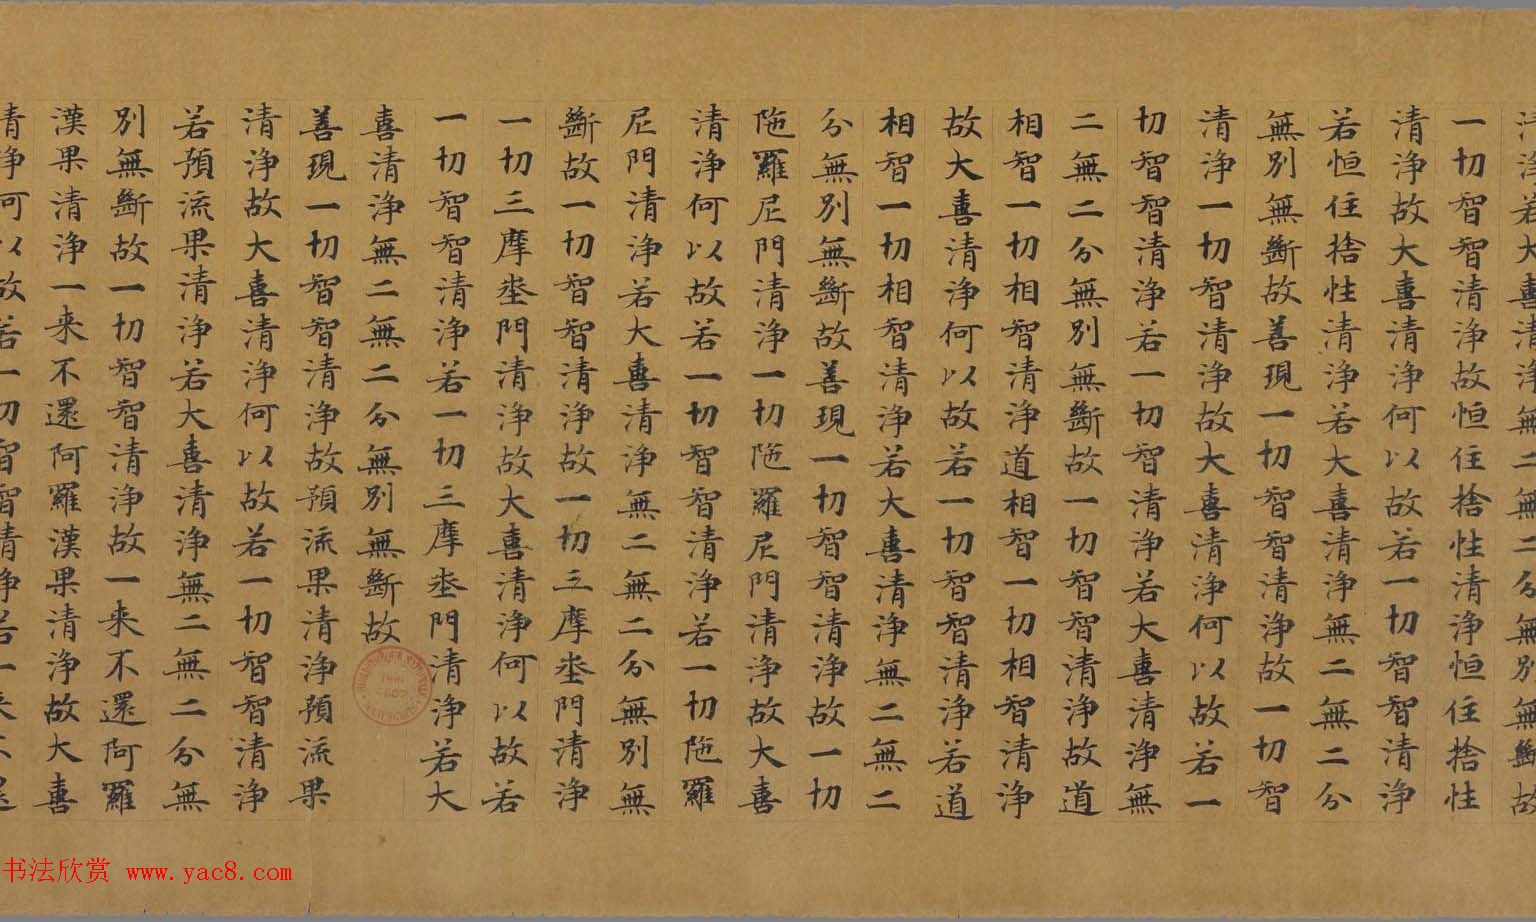 清浄若大喜清浄無二無二分無別無斷故
一切智智清浄故恒住捨性清浄恒住捨性
清浄故大喜清浄何以故若一切智智清浄
若恒住捨性清浄若大喜清浄無二無二分
無別無斷故善現一切智智清浄故一切智
清浄一切智清浄故大喜清浄何以故若一
切智智清浄若一切智清浄若大喜清浄無
二無二分無別無斷故一切智智清浄故道
相智一切相智清浄道相智一切相智清浄
故大喜清浄何以故若一切智智清浄若道
相智一切相智清浄若大喜清浄無二無二
分無別無斷故善現一切智智清浄故一切
陁羅尼門清浄一切陁羅尼門清浄故大喜
清浄何以故若一切智智清浄若一切陁羅
尼門清浄若大喜清浄無二無二分無別無
斷故一切智智清浄故一切三摩坔門清浄
一切三摩坔門清浄故大喜清浄何以故若
一切智智清浄若一切三摩坔門清浄若大
喜清浄無二無二分無別無斷故
善現一切智智清浄故預流果清浄預流果
清浄故大喜清浄何以故若一切智智清浄
若預流果清浄若大喜清浄無二無二分無
別無斷故一切智智清浄故一来不還阿羅
漢果清浄一来不還阿羅漢果清浄故大喜
清浄何以故若一切智智清浄若一来不還
书法欣赏 www.yac8.com